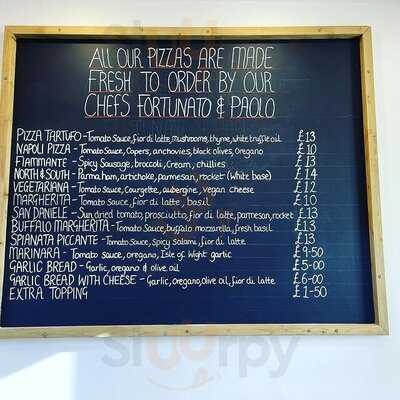 ALL OUR PIZZAS ARE MADE
FRESH TO ORDER BY OUR
CHEFS FORTUNATO & PAOLO
PIZZA TARTUFO - Tomato Sauce, fior di latte, mushrooms, thyme, white truffle oil £13
NAPOLI PIZZA - Tomato Sauce, Capers, anchovies, black olives, Oregano £10
FIAMMANTE - Spicy Sausage, broccoli, Cream, chillies £13
NORTH & SOUTH - Parma ham, artichoke, parmesan, rocket (White base) £14
VEGETARIANA - Tomato Sauce, Courgette, aubergine, vegan cheese £12
MARGHERITA - Tomato Sauce, fior di latte, basil £10
SAN DANIELE - Sun dried tomato, prosciutto, fior di latte, parmesan, rocket £13
BUFFALO MARGHERITA - Tomato Sauce, buffalo mozzarella, fresh basil £13
SPIANATA PICCANTE - Tomato Sauce, Spicy salami, fior di latte £13
MARINARA - Tomato sauce, oregano, Isle of Wight garlic £9-50
GARLIC BREAD - Garlic, oregano & olive oil £5-00
GARLIC BREAD WITH CHEESE - Garlic, oregano, olive oil, fior di latte £6-00
EXTRA TOPPING £1-50
sluurpy